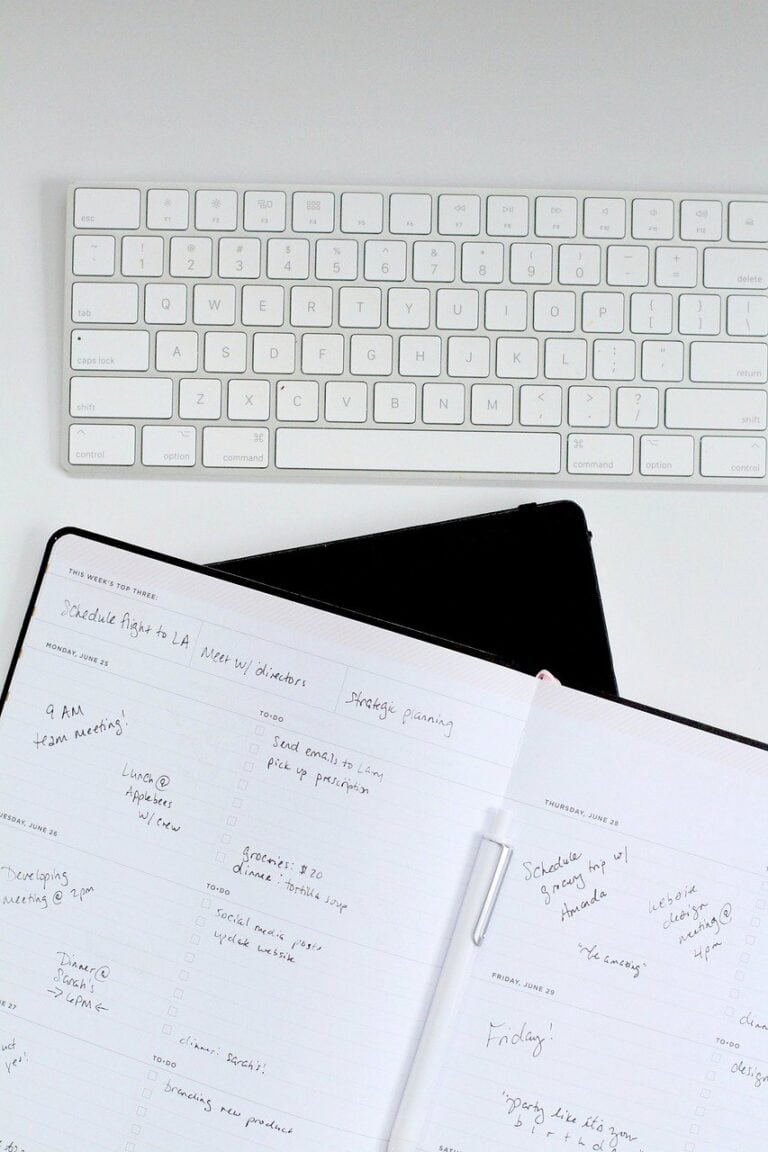 esc F1 F2 F3 F4 F5 F6 F7 F8 F9 F10 F11 F12
~ ` ! 1 @ 2 # 3 $ 4 % 5 ^ 6 & 7 * 8 ( 9 ) 0 — - + = delete
tab Q W E R T Y U I O P { [ } ] | \
caps lock A S D F G H J K L : ; " ' return
shift Z X C V B N M < , > . ? / shift
control option command command option control
THIS WEEK'S TOP THREE:
Schedule flight to LA
Meet w/ directors
Strategic planning
MONDAY, JUNE 25
9 AM
team meeting!
Lunch @
Applebees
w/ crew
TO-DO
Send emails to
pick up prescription
groceries: $20
dinner: tortilla soup
UESDAY, JUNE 26
Developing
meeting @ 2pm
Dinner @
Sarah's
→ 6PM ←
TO-DO
social media posts
update website
dinner: Sarah's!
27
uct
yet!
TO-DO
branding new product
THURSDAY, JUNE 28
Schedule
grocery trip w/
Amanda
website
design
meeting @
4pm
"Be amazing"
FRIDAY, JUNE 29
Friday!
"party like it's your
b i r t h d
TO-DO
design
SATU